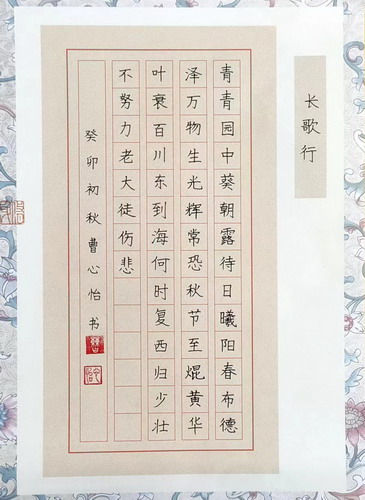 长歌行
青青园中葵朝露待日曦阳春布德
泽万物生光辉常恐秋节至焜黄华
叶衰百川东到海何时复西归少壮
不努力老大徒伤悲
癸卯初秋曹心怡书